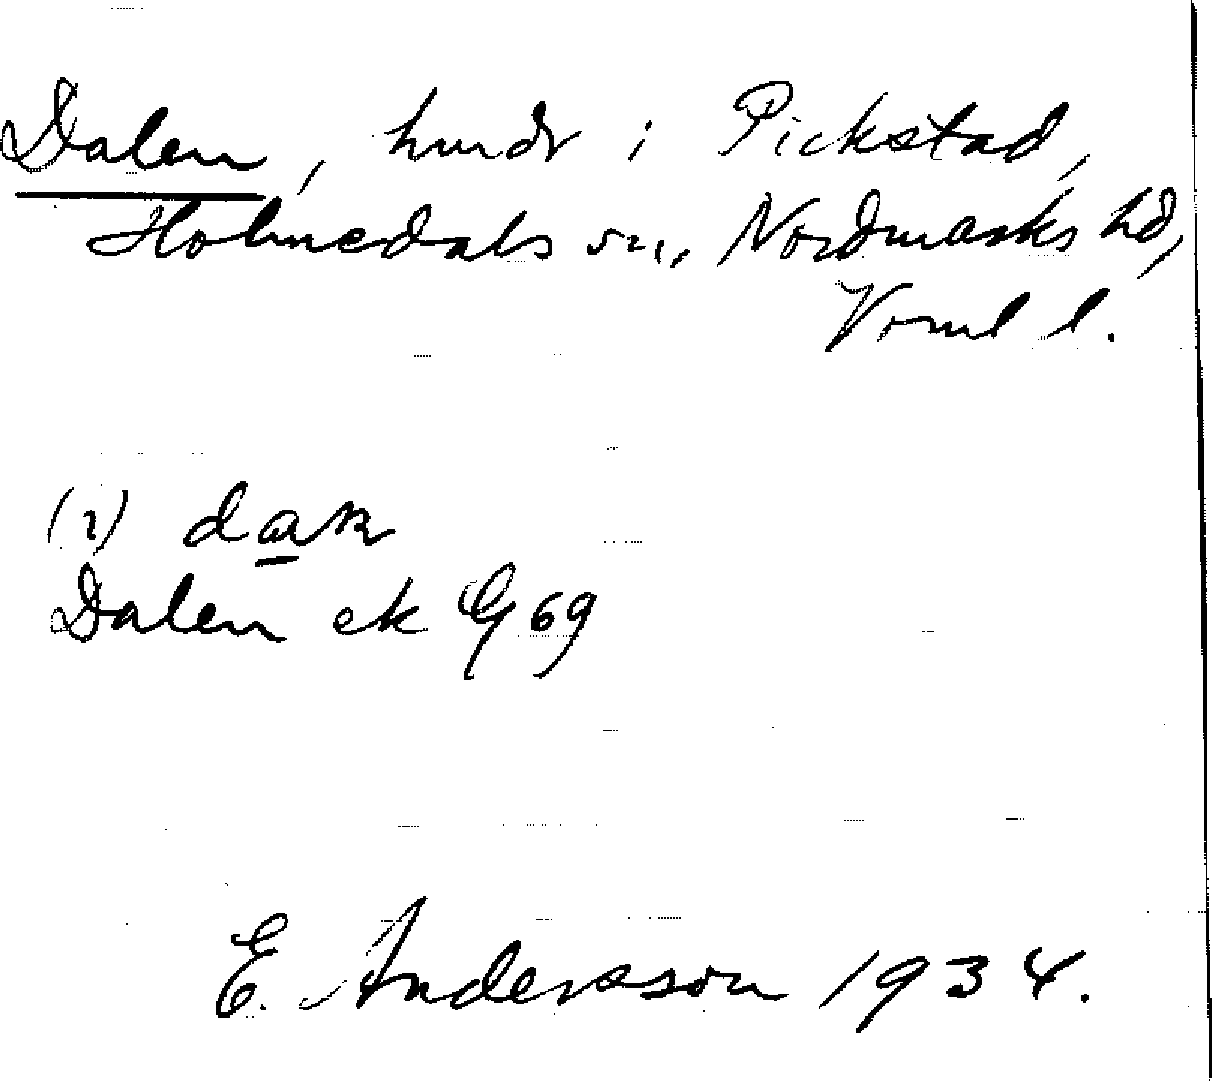 Dalen, hmdr i Pickstad,
Holmedals sn, Nordmarks hd,
Vrml l.
(i) dan
Dalen ek G 69
E. Andersson 1934.